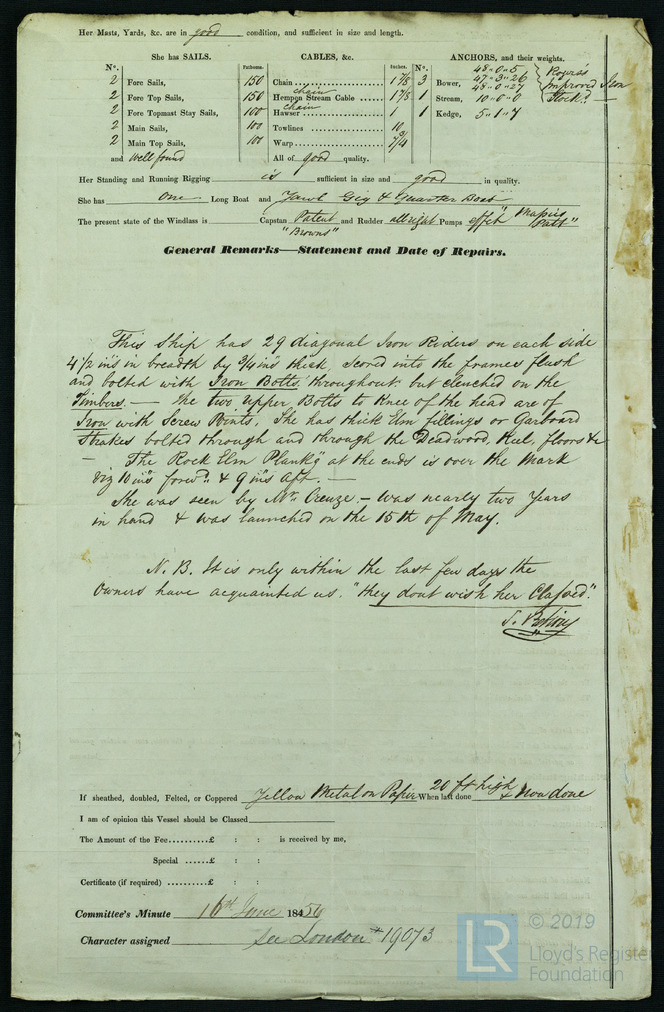 Her Masts, Yards, &c. are in good condition, and sufficient in size and length.
She has SAILS. CABLES, &c. ANCHORS, and their weights.
N°. Fathoms. Inches. N°.
2 Fore Sails, 150 Chain 1 7/8 3 Bower, 48 - 0 - 5
47 - 3 - 26
48 - 0 - 27
Rogers's Improved Iron Stock
2 Fore Top Sails, 150 Hempen chain Stream Cable 1 1/8 1 Stream, 10 - 0 - 0
2 Fore Topmast Stay Sails, 100 Hawser chain 1 1 Kedge, 5 - 1 - 7
2 Main Sails, 100 Towlines 10
2 Main Top Sails, 100 Warp
and well found All of good quality.
Her Standing and Running Rigging is sufficient in size and good in quality.
She has One Long Boat and Yawl Gig & Quarter Boat
The present state of the Windlass is Capstan Patent "Browns" and Rudder allright Pumps
General Remarks—Statement and Date of Repairs.
This Ship has 29 diagonal Iron Riders on each side
4 1/2 ins in breadth by 3/4 ins thick, scored into the frames flush
and bolted with Iron Bolts throughout but clenched on the
Timbers. — The two upper Bolts to Knee of the head are of
Iron with Screw Points. She has thick Elm fillings or Garboard
Strakes bolted through and through the Deadwood, Keel, floors &c
— The Rock Elm Plank'g at the ends is over the Mark
viz 10 ins forwd. & 9 ins aft. —
She was seen by Mr. Creuze. — was nearly two Years
in hand & was launched on the 15th of May.
N. B. It is only within the last few days the
Owners have acquainted us. "they dont wish her Classed".
If sheathed, doubled, Felted, or Coppered Yellow Metal on Paper 20 ft high When last done & Now done
I am of opinion this Vessel should be Classed
The Amount of the Fee..........£ : : is received by me,
Special ......£ : :
Certificate (if required) ..........£ : :
Committee's Minute 16th June 1856
Character assigned See London 19073
© 2019
LR Lloyd's Register
Foundation